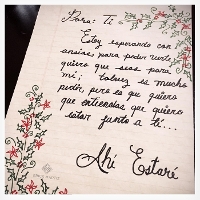 Para: Ti -
Estoy esperando con
ansias para poder verte,
quiero que seas para
mí; talvez es mucho
pedir, pero es que quiero
que entiendas que quiero
estar junto a ti...
Ahí Estaré